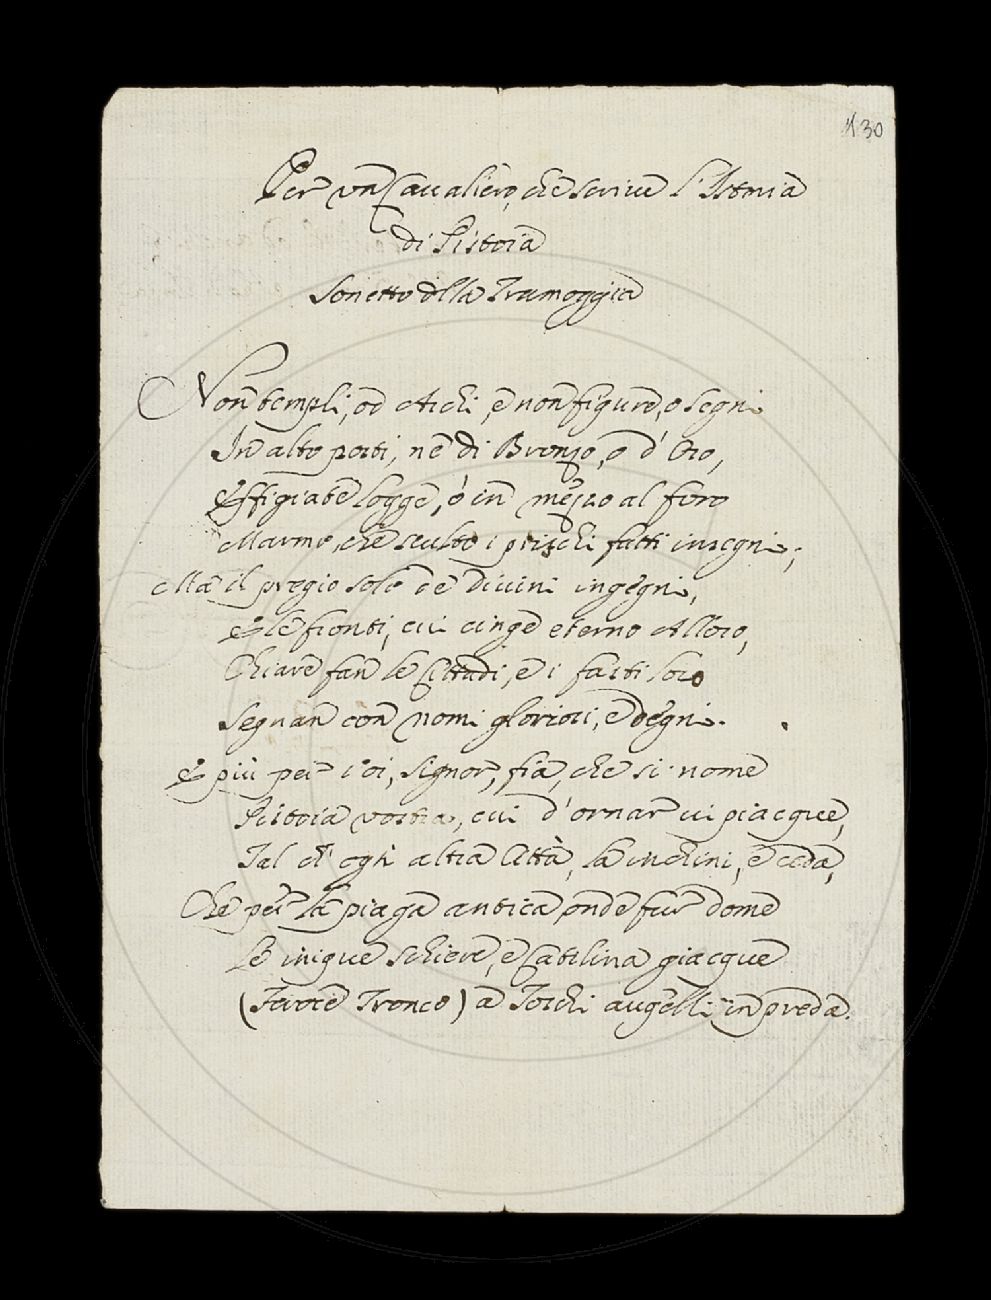 130
Per vn Caualiero, che scriue l'Istoria
di Pistoia
Sonetto della Tramoggia
Non templi, od Archi, e non figure, o segni
In alto posti, ne di Bronzo, o d'Oro,
Effigiate logge, ò in mezzo al foro
Marmo, che sculto i prischi fatti insegni;
Ma il pregio solo de diuini ingegni,
E le fronti, cui cinge eterno Alloro,
Chiare fan le Cittadi, e i fasti loro
Segnan con nomi gloriosi, e degni.
E più per Voi, Signor, fia, che si nome
Pistoia vostra, cui d'ornar ui piacque,
Tal ch'ogni altra Città, la inchini, e ceda,
Che per la piaga antica onde fur dome
Le inique schiere, e Catilina giacque
(Feroce Tronco) a Toschi augelli in preda.